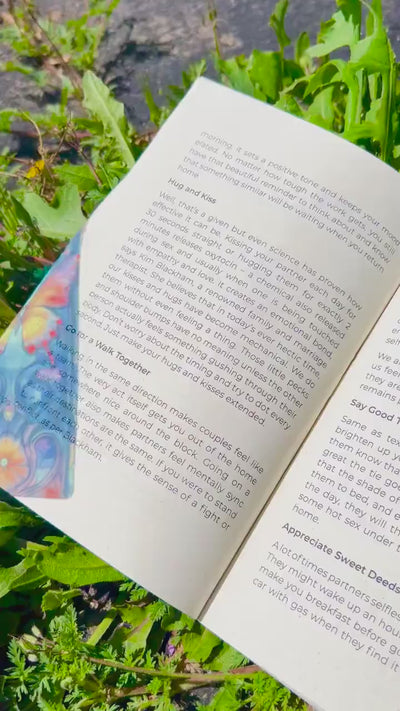 morning, it sets a positive tone and keeps your mood
erased. No matter how tough the work gets, you still
have that beautiful reminder to think about, and know
that something similar will be waiting when you return
home.
Hug and Kiss
Well, that's a given but even science has proven how
effective it can be. Kissing your partner each day for
30 seconds straight or hugging them for exactly 2
minutes releases oxytocin - a chemical also released
during sex and usually when one is being touched
with empathy and love. It creates an emotional bond,
says Kim Blackham, a renowned family and marriage
therapist. She believes that in today's ever hectic time,
our kisses and hugs have become mechanical. We do
them without even feeling a thing. Those little pecks
and shoulder bumps have no meaning unless the other
person actually feels something gushing through their
body. Don't worry about the timing and try to clot every
second. Just make your hugs and kisses extended.
Go for a Walk Together
Walking in the same direction makes couples feel like
the very act itself gets you out of the home
somewhere nice around the block. Going on a
together also makes partners feel mentally sync
destinations are the same. If you were to stand
from each other, it gives the sense of a fight or
as per Blackham.
We a
us fee
they are
remains
Say Good
Same as tex
brighten up you
them know that
great the tie goe
that the shade of
them to bed, and e
the day, they will th
some hot sex under t
home.
Appreciate Sweet Deeds
A lot of times partners selfless
They might wake up an hou
make you breakfast before go
car with gas when they find it